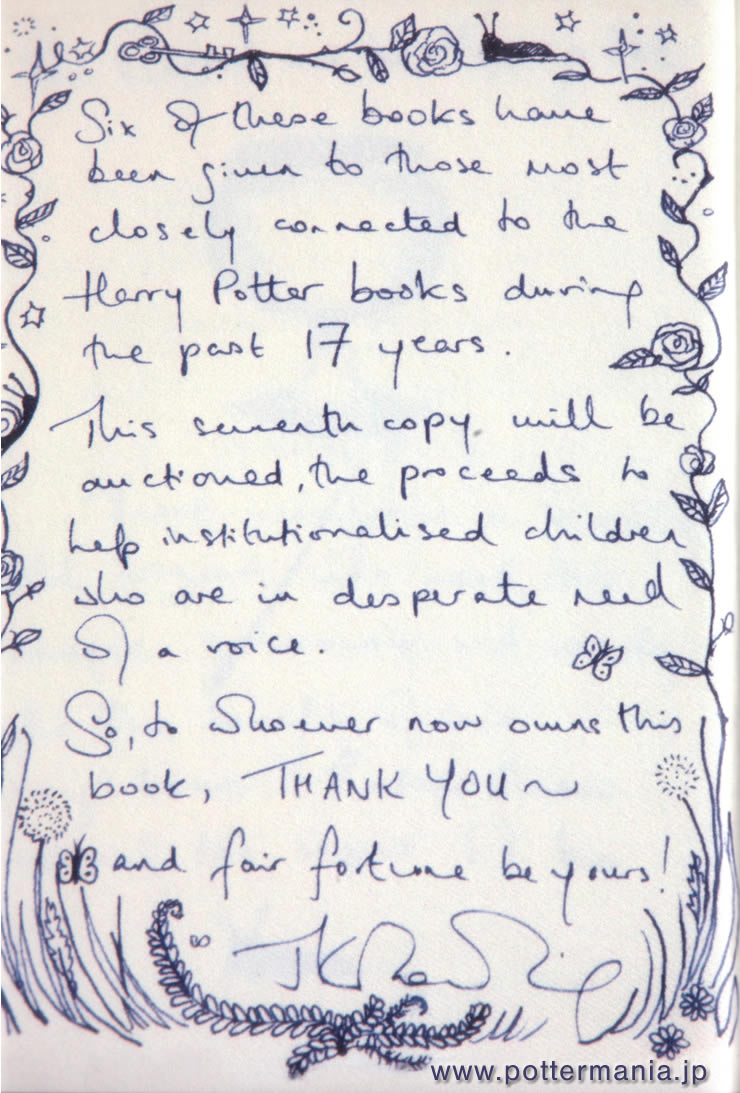 Six of these books have
been given to those most
closely connected to the
Harry Potter books during
the past 17 years.
This seventh copy will be
auctioned, the proceeds to
help institutionalised children
who are in desperate need
of a voice.
So, to whoever now owns this
book, THANK YOU ~
and fair fortune be yours!
JK Rowling
www.pottermania.jp